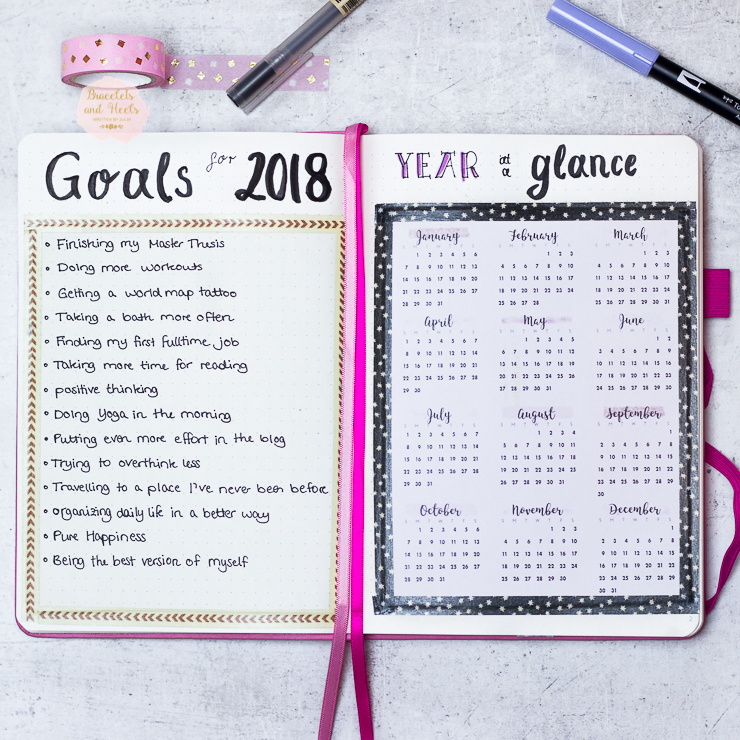 Bracelets
and Heels
Goals for 2018
• Finishing my Master Thesis
• Doing more workouts
• Getting a world map tattoo
• Taking a bath more often
• Finding my first fulltime job
• Taking more time for reading
• positive thinking
• Doing Yoga in the morning
• Putting even more effort in the blog
• Trying to overthink less
• Travelling to a place I've never been before
• organizing daily life in a better way
• Pure Happiness
• Being the best version of myself
YEAR at a glance
January
1 2 3 4 5 6
7 8 9 10 11 12 13
14 15 16 17 18 19 20
21 22 23 24 25 26 27
28 29 30 31
February
1 2 3
4 5 6 7 8 9 10
11 12 13 14 15 16 17
18 19 20 21 22 23 24
25 26 27 28
March
1 2 3
4 5 6 7 8 9 10
11 12 13 14 15 16 17
18 19 20 21 22 23 24
25 26 27 28 29 30 31
April
1 2 3 4 5 6 7
8 9 10 11 12 13 14
15 16 17 18 19 20 21
22 23 24 25 26 27 28
29 30
May
1 2 3 4 5
6 7 8 9 10 11 12
13 14 15 16 17 18 19
20 21 22 23 24 25 26
27 28 29 30 31
June
1 2
3 4 5 6 7 8 9
10 11 12 13 14 15 16
17 18 19 20 21 22 23
24 25 26 27 28 29 30
July
1 2 3 4 5 6 7
8 9 10 11 12 13 14
15 16 17 18 19 20 21
22 23 24 25 26 27 28
29 30 31
August
1 2 3 4
5 6 7 8 9 10 11
12 13 14 15 16 17 18
19 20 21 22 23 24 25
26 27 28 29 30 31
September
1
2 3 4 5 6 7 8
9 10 11 12 13 14 15
16 17 18 19 20 21 22
23 24 25 26 27 28 29
30
October
1 2 3 4 5 6
7 8 9 10 11 12 13
14 15 16 17 18 19 20
21 22 23 24 25 26 27
28 29 30 31
November
1 2 3
4 5 6 7 8 9 10
11 12 13 14 15 16 17
18 19 20 21 22 23 24
25 26 27 28 29 30
December
1
2 3 4 5 6 7 8
9 10 11 12 13 14 15
16 17 18 19 20 21 22
23 24 25 26 27 28 29
30 31